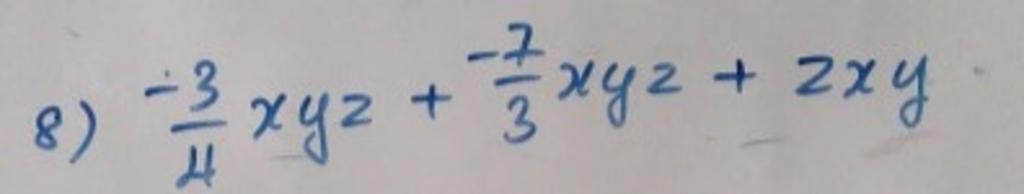 8) -3/4 xyz + -7/3 xyz + zxy